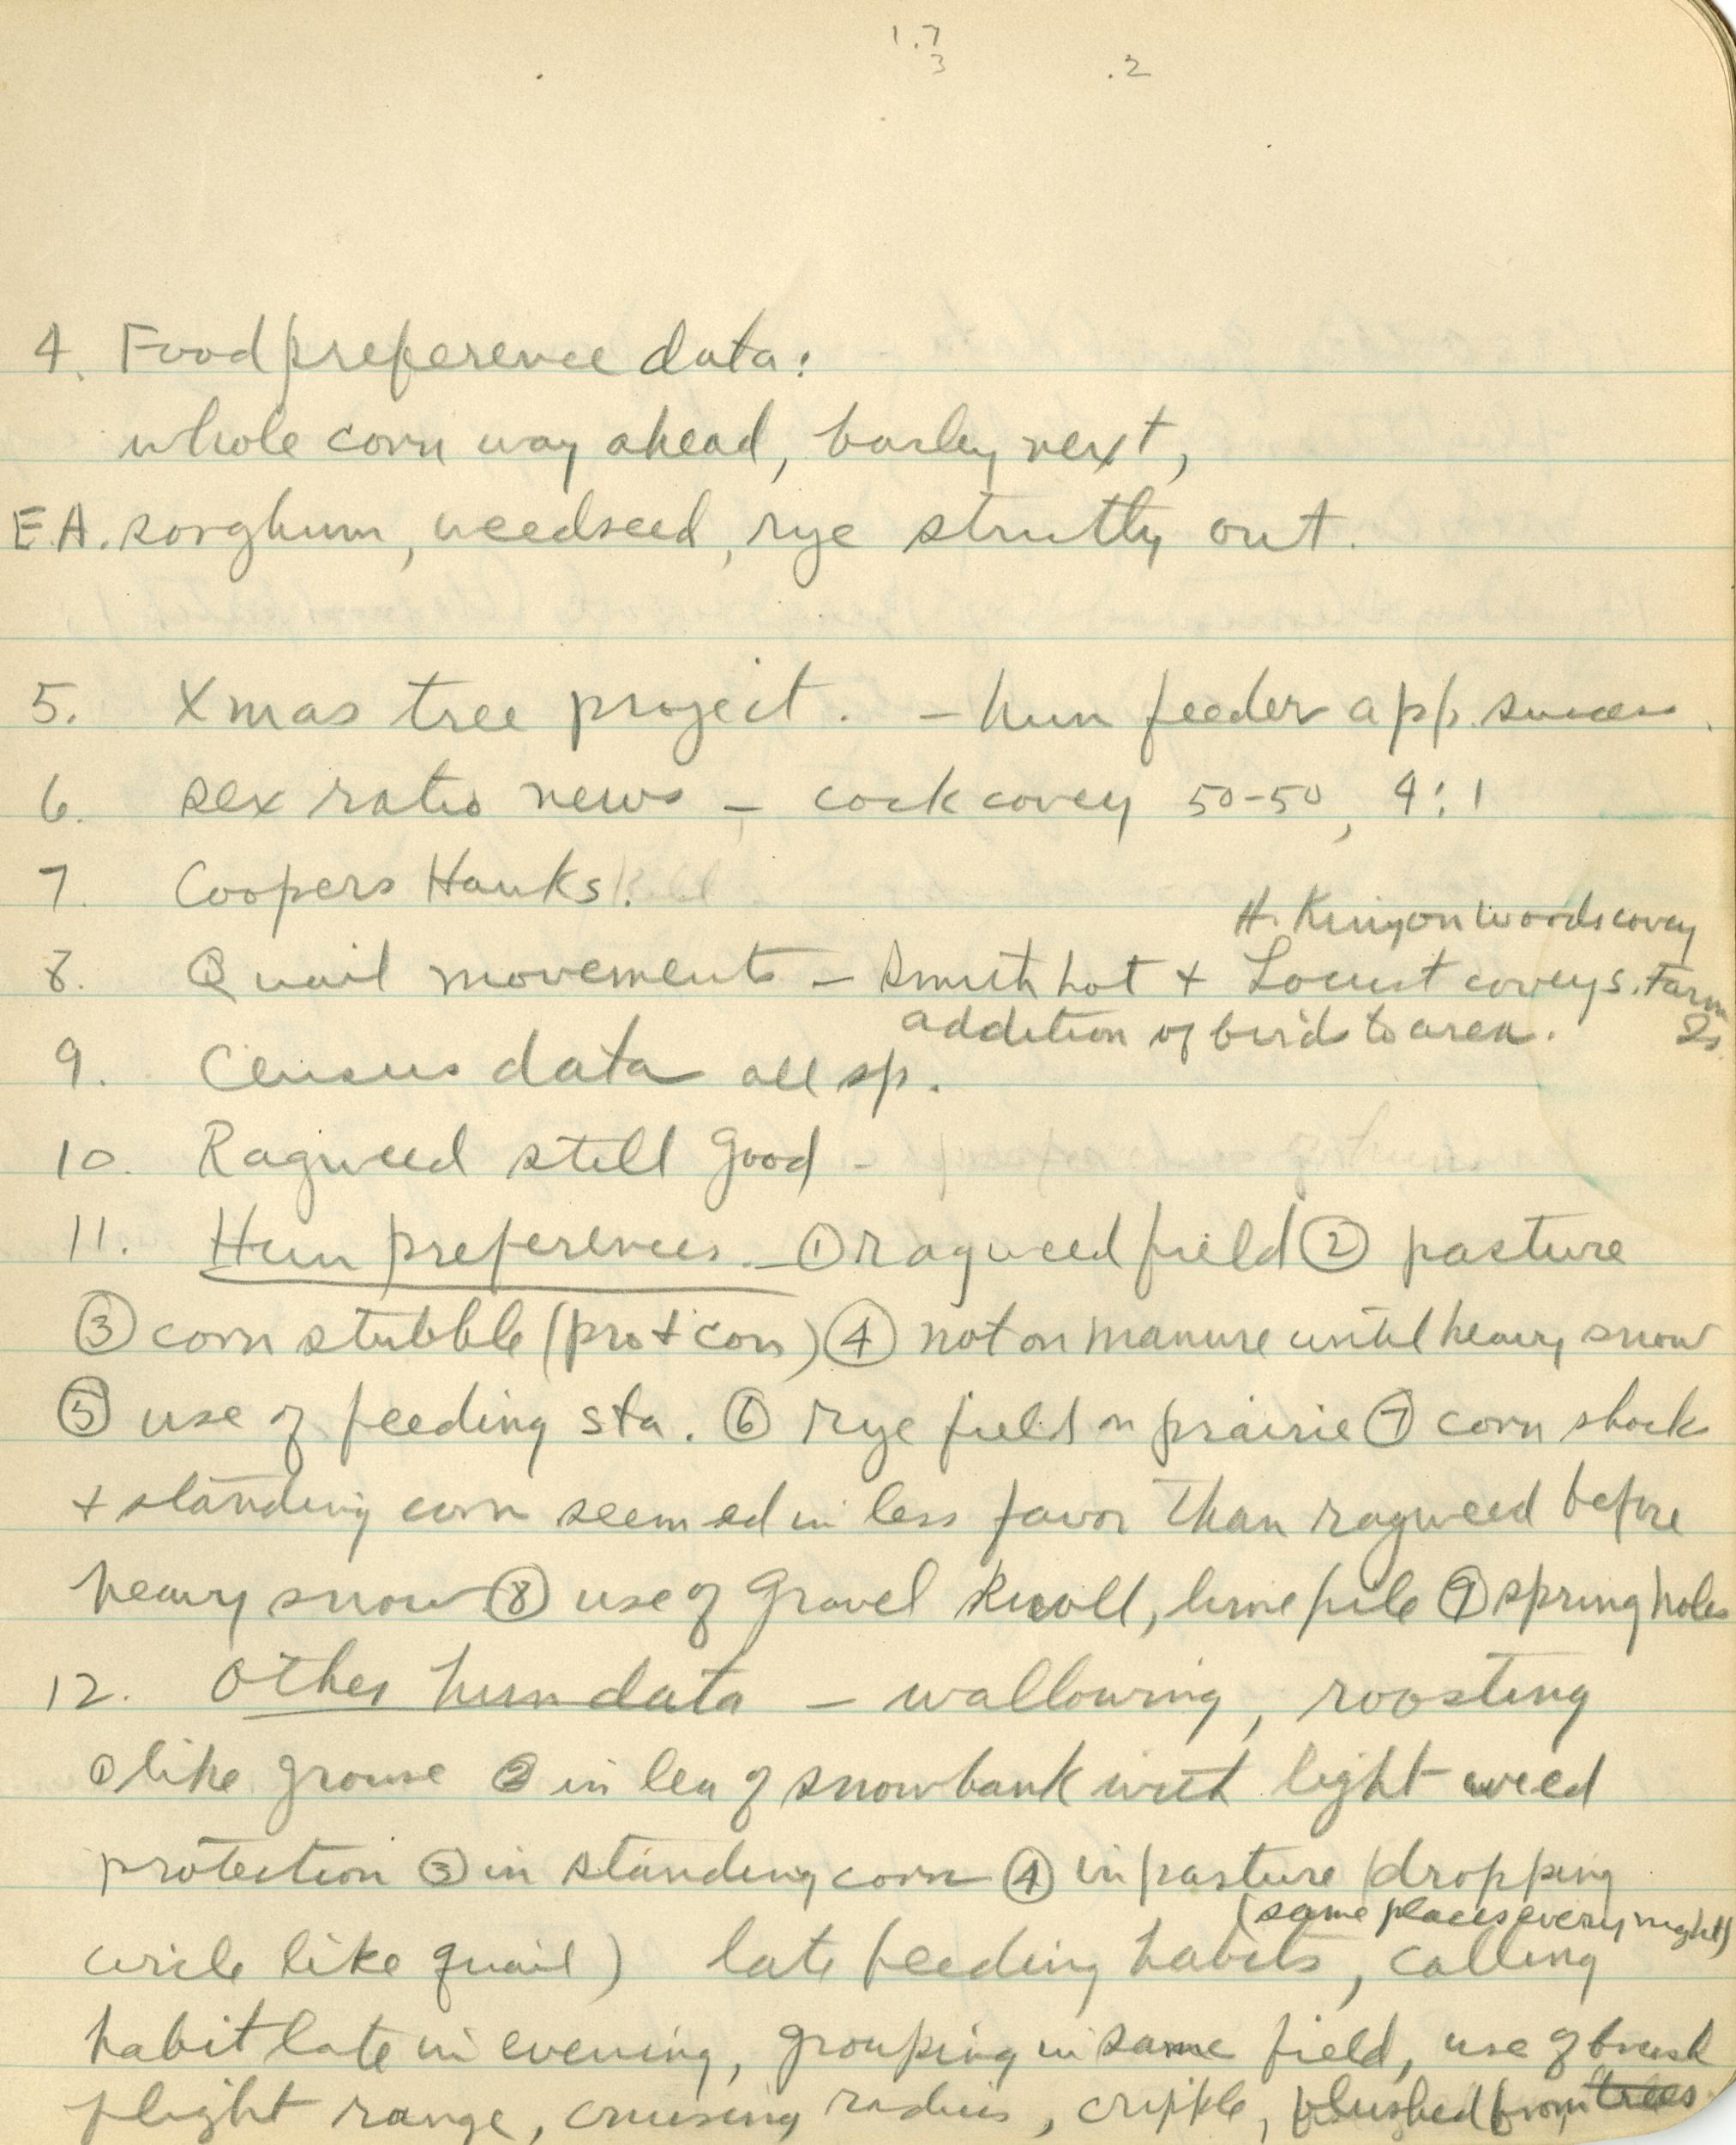 1.7
3 .2
4. Food preference data:
whole corn way ahead, barley next,
E.A. sorghum, weedseed, rye strictly out.
5. Xmas tree project. - hun feeder app. success.
6. sex ratio news - cock covey 50-50, 4:1
7. Coopers Hawks.
H. Kinyon woods covey
8. Quail movements - Smith lot + Locust coveys. Farm
addition of birds to area.
9. Census data all sp.
10. Ragweed still good -
11. Hun preferences. - ① ragweed field ② pasture
③ corn stubble (pro + con) ④ not on manure until heavy snow
⑤ use of feeding sta. ⑥ rye field on prairie ⑦ corn shock
+ standing corn seemed in less favor than ragweed before
heavy snow ⑧ use of gravel knoll, lime pile ⑨ spring holes
12. Other hun data - wallowing, roosting
① like grouse ② in lea of snowbank with light weed
protection ③ in standing corn ④ in pasture (dropping
(same places every night)
circle like quail) late feeding habits, calling
habit late in evening, grouping in same field, use of brush
flight range, cruising radius, cripple, flushed from trees